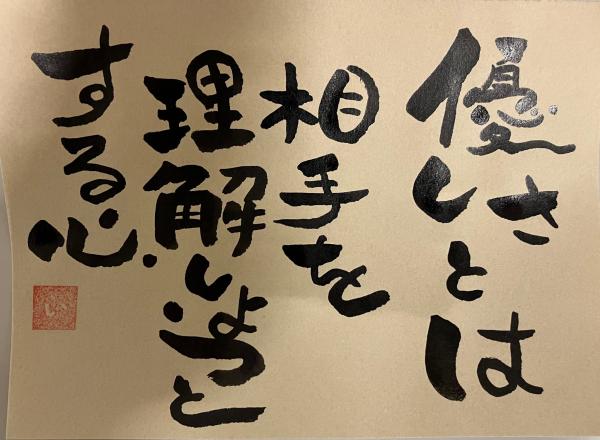 優しさとは
相手を
理解しようと
する心